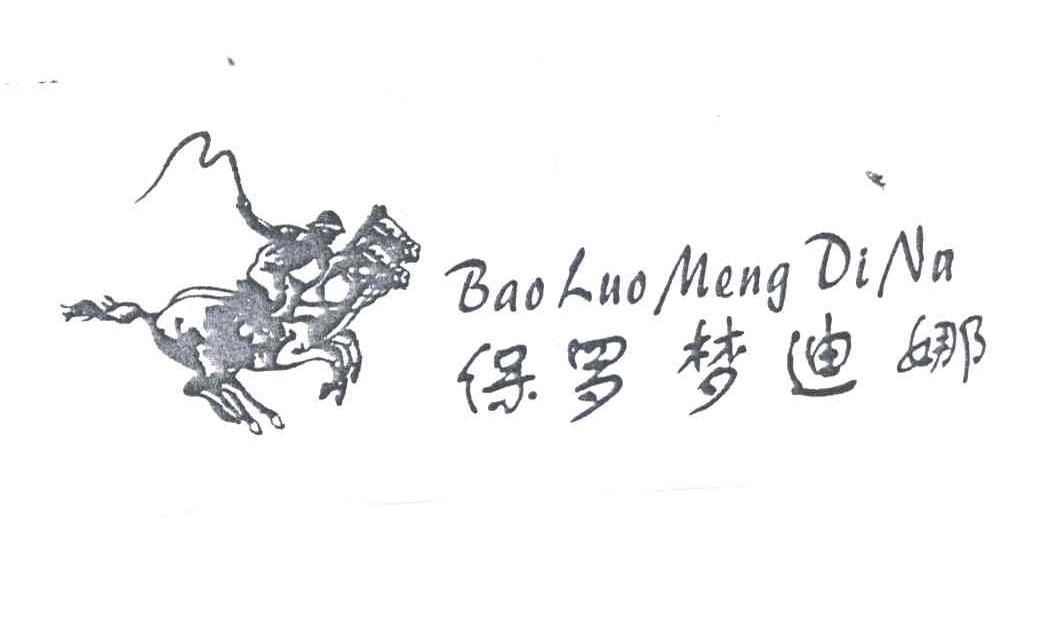 Bao Luo Meng Di Na
保罗梦迪娜